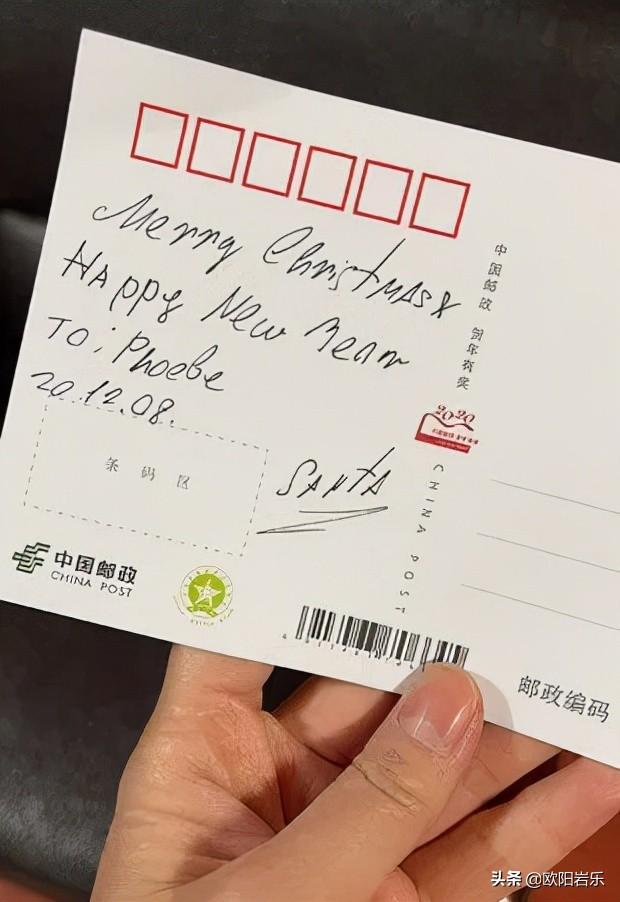 Merry Christmas &
Happy New Year
To: Phoebe
20.12.08.
SANTA
条码区
中国邮政
CHINA POST
中国邮政
2020
CHINA POST
邮政编码
头条 @欧阳岩乐